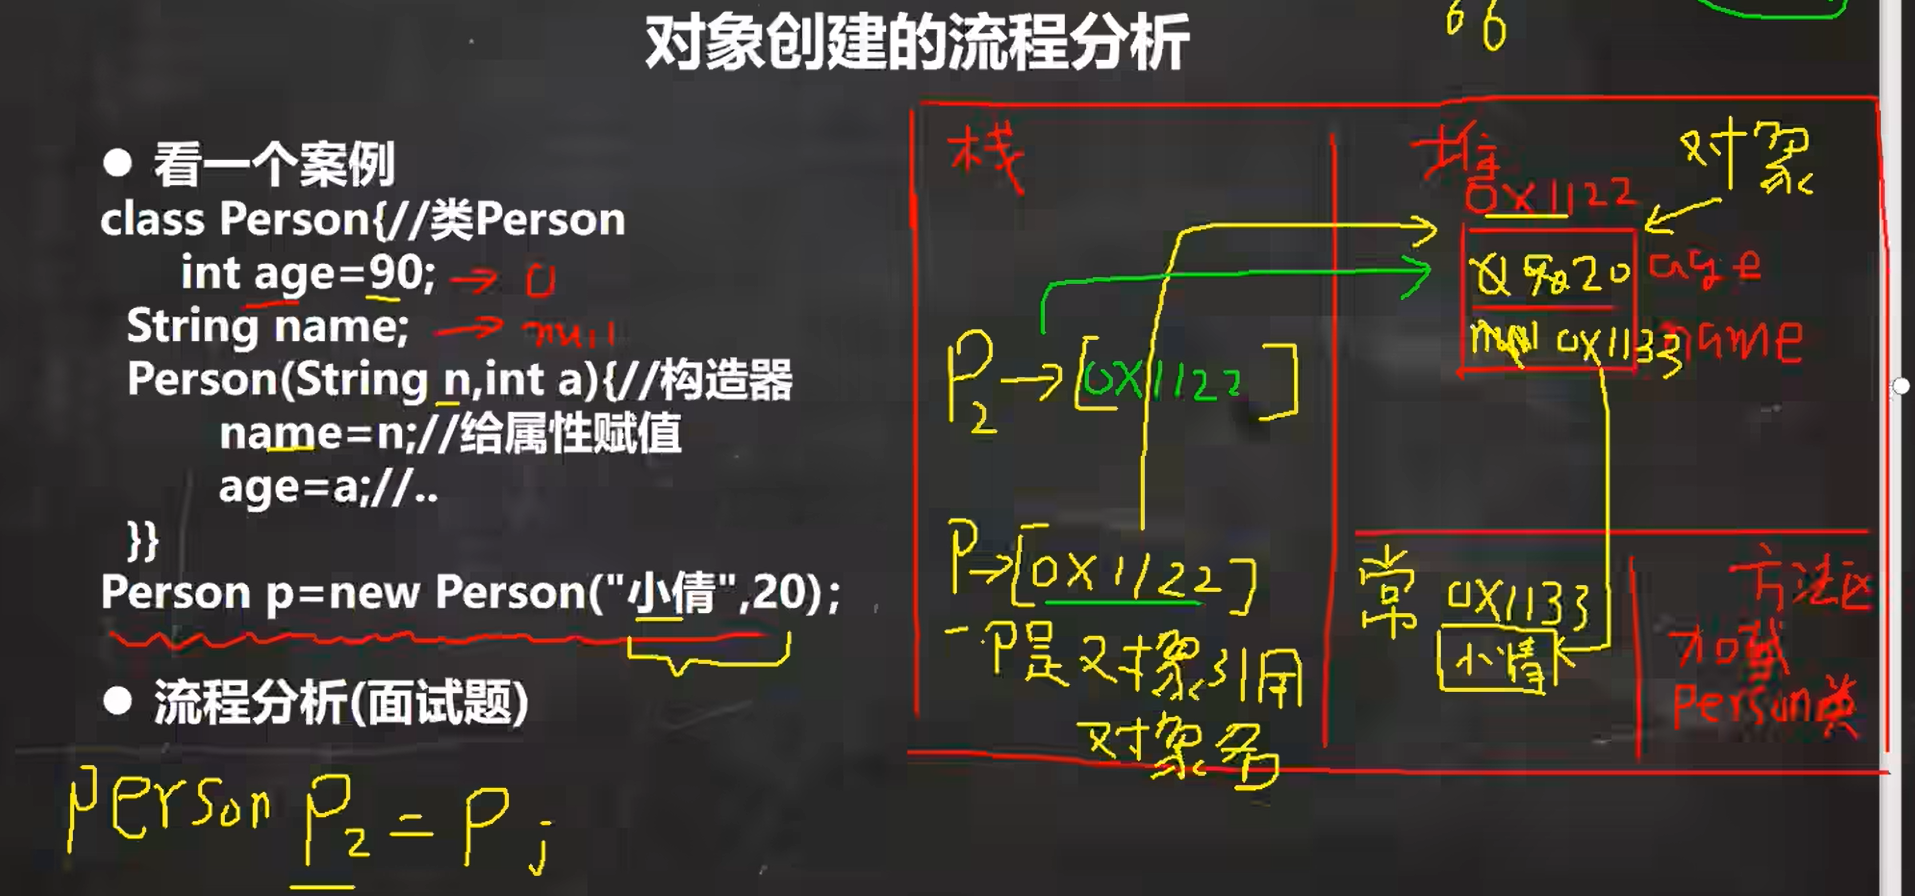 66
对象创建的流程分析
● 看一个案例
class Person{//类Person
int age=90; → 0
String name; → null
Person(String n,int a){//构造器
name=n;//给属性赋值
age=a;//..
}}
Person p=new Person("小倩",20);
● 流程分析(面试题)
Person P2 = P;
栈
P2→[0X1122]
P→[0X1122]
P是对象引用
对象名
堆
对象
0X1122
0 90 20 age
null 0X1133 name
常
0X1133
小倩
方法区
加载
Person类